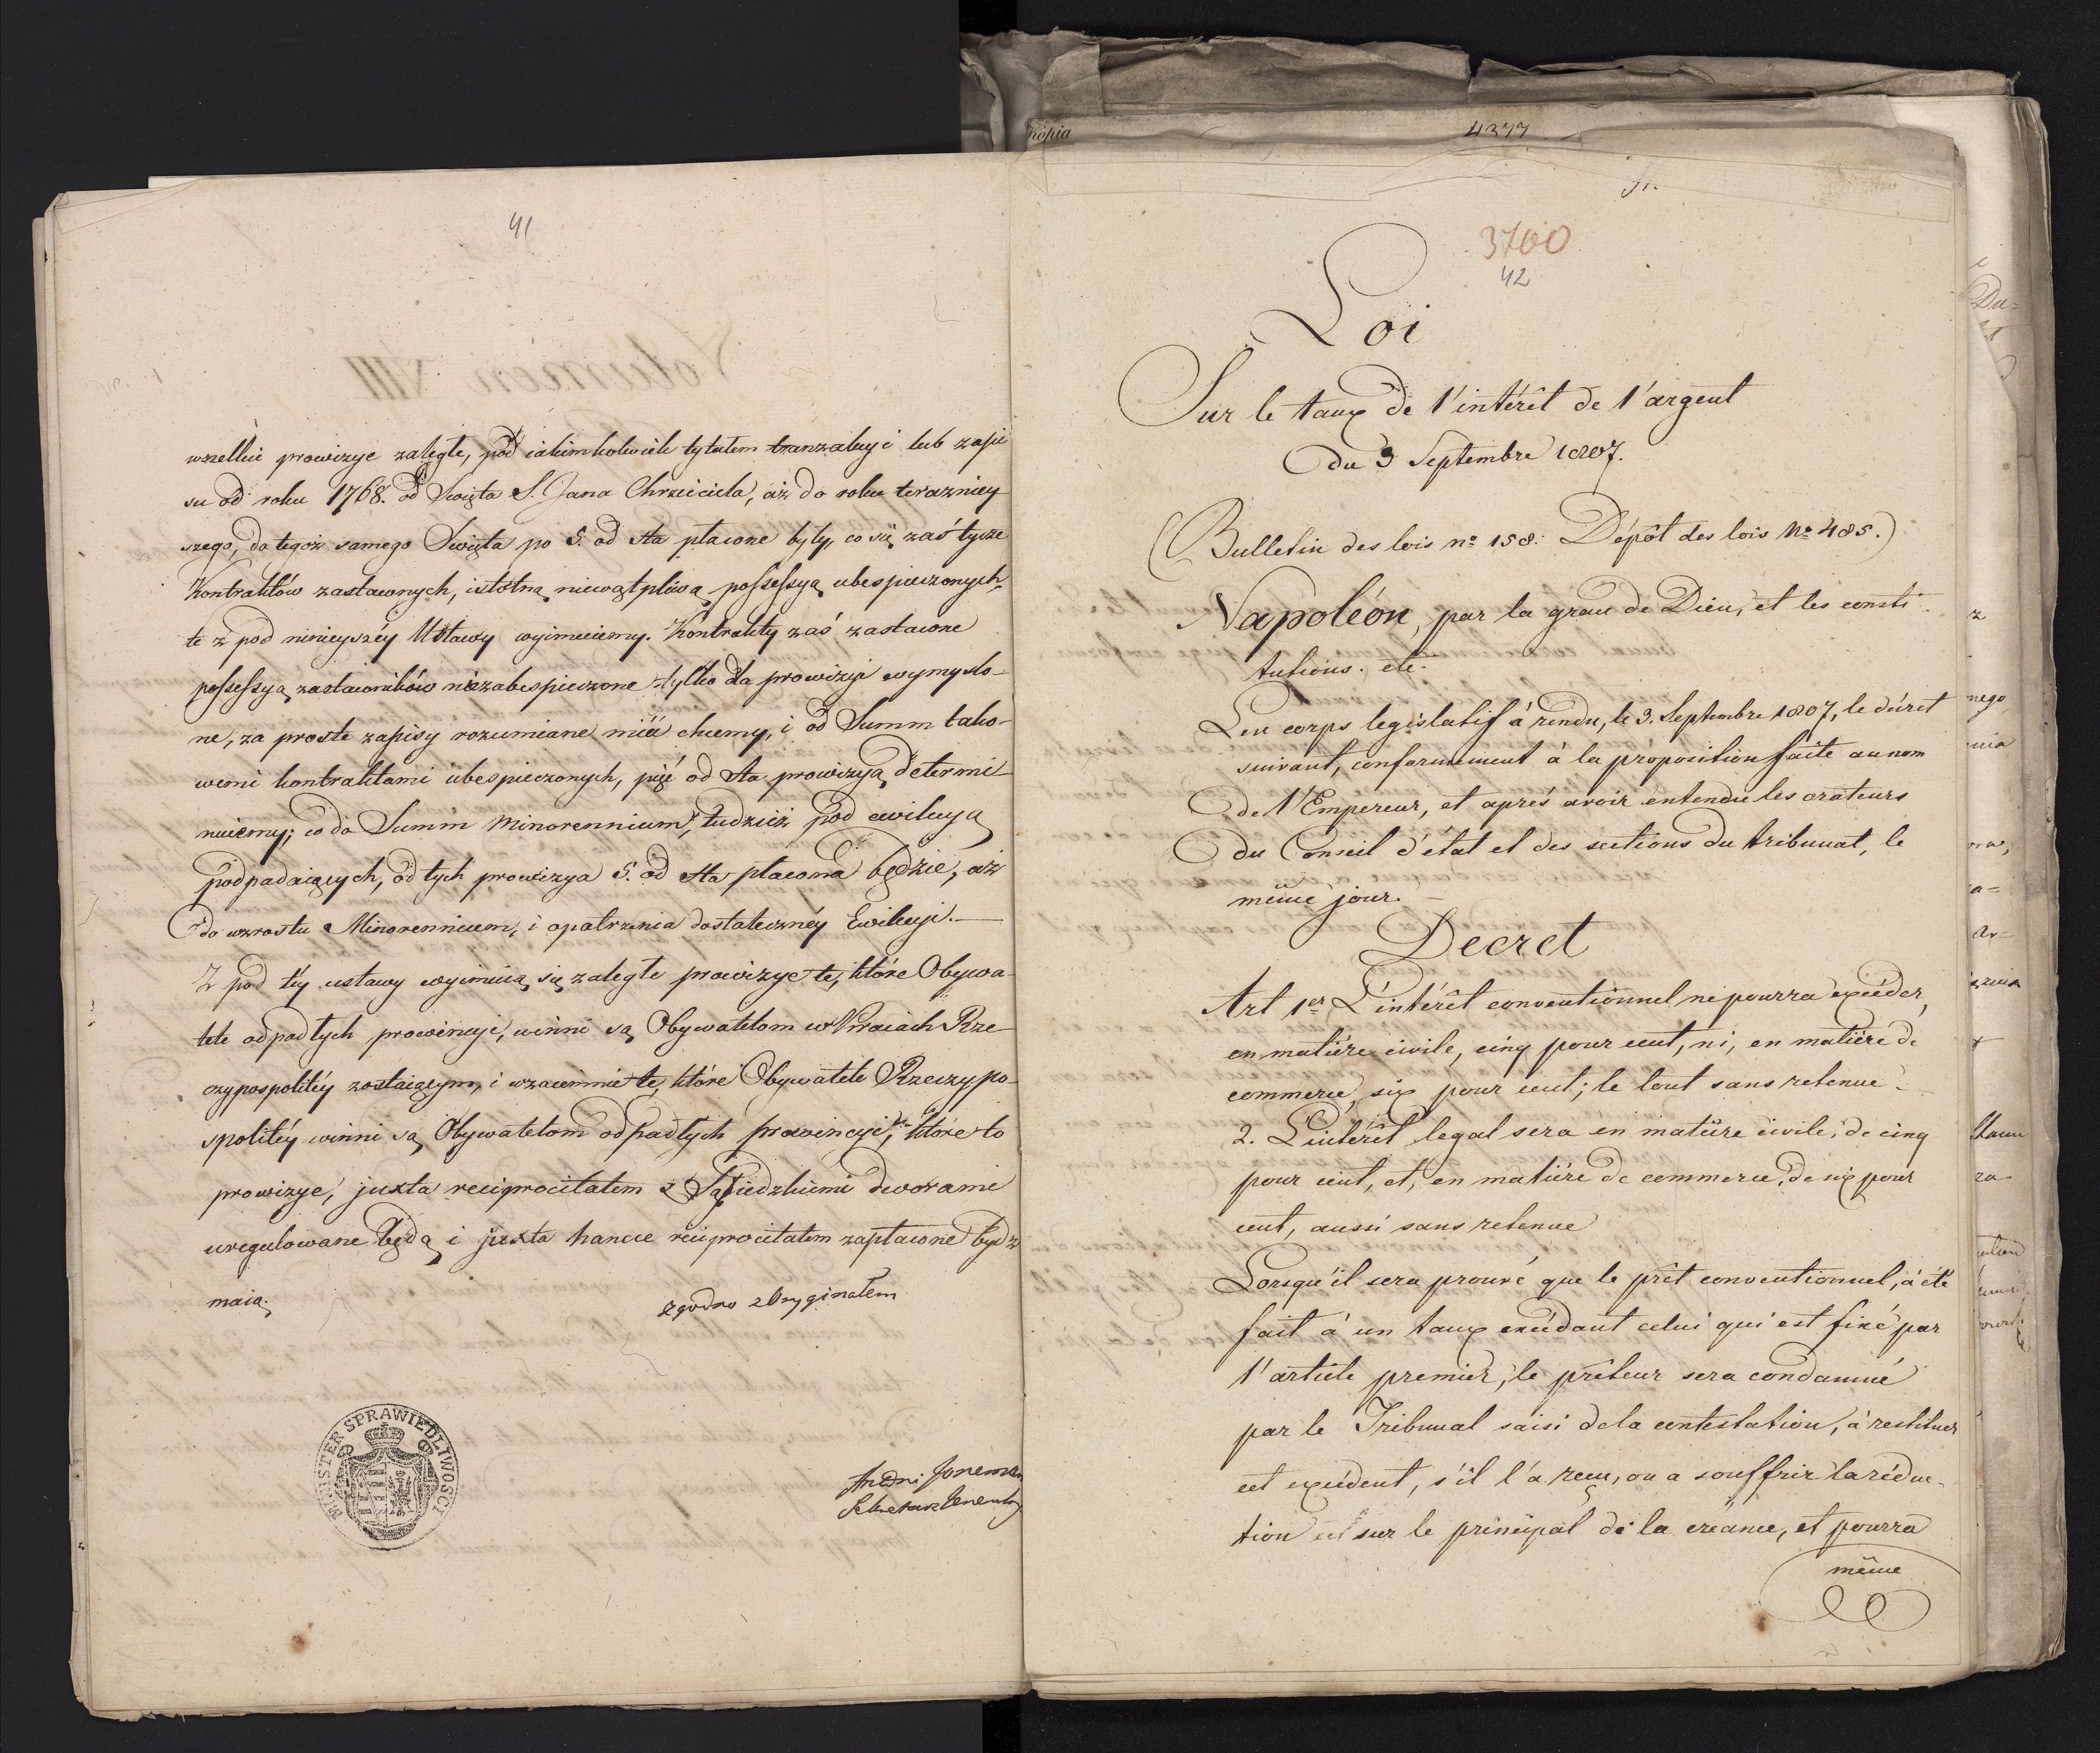 41
wszelkie prowizye zaległe, pod iakimkolwiek tytułem tranzakcyi lub zapi
su od roku 1768. od Swięta S. Jana Chrzciciela, aż do roku terazniey
szego, do tegoż samego Swięta po 5. od sta płacone były, co się zaś tycze
Kontraktów zastawnych, istotną niewątpliwą possessyą ubespieczonych,
te z pod ninieyszéy Ustawy wyimuiemy. Kontrakty zaś zastawne
possessyą zastawników niezabespieczone tylko dla prowizyi wymyślo-
ne, za proste zapisy rozumiane mieć chcemy, i od Summ tako-
wemi kontraktami ubespieczonych, pięć od sta prowizyą determi-
nuiemy; co do Summ Minorennium, tudzież pod ewikcyą
podpadaiących, od tych prowizya 5. od sta płacona będzie, aż
do wzrostu Minorennium, i opatrzenia dostateczney Ewikcyi.—
Z pod téy ustawy wyimuią się zaległe prowizye te, które Obywa-
tele odpadłych prowincyi, winni są Obywatelom w Kraiach Rze-
czypospolitéy zostaiącym, i wzaiemnie te, które Obywatele Rzeczypo-
spolitéy winni są Obywatelom odpadłych prowincyi, które to
prowizye, juxta reciprocitatem z Sąsiedzkiemi dworami
uregulowane będą i juxta hancce reciprocitatem zapłacone bydź
maią.
zgodno z Oryginałem
MINISTER SPRAWIEDLIWOSCI
Sekretarz
Kopia
4277
3700
42
Loi
Sur le taux de l'intérêt de l'argent
du 3 Septembre 1807.
(Bulletin des lois no 158. Dépôt des lois No 485.)
Napoléon, par la grace de Dieu, et les consti-
tutions. etc.
Leu corps legislatif à rendu, le 3. Septembre 1807, le décret
suivant, conformément à la proposition faite au nom
de l'Empereur, et aprés avoir entendu les orateurs
du Conseil d'état et des sections du tribunat, le
même jour.
Decret
Art 1er L'intérêt conventionnel ne pourra excéder,
en matière civile, cinq pour cent, ni, en matière de
commerce, six pour cent; le tout sans retenue.
2. L'intérêt legal sera en matière civile, de cinq
pour cent, et, en matière de commerce, de six pour
cent, aussi sans retenue
Lorsqu'il sera prouvé que le prêt conventionnel, à été
fait à un taux excédant celui qui est fixé par
l'article premier, le prêteur sera condamné
par le Tribunal saisi de la contestation, à restituer
cet excédent, s'il l'a reçu, ou a souffrir la réduc-
tion sur le principal de la créance, et pourra
même